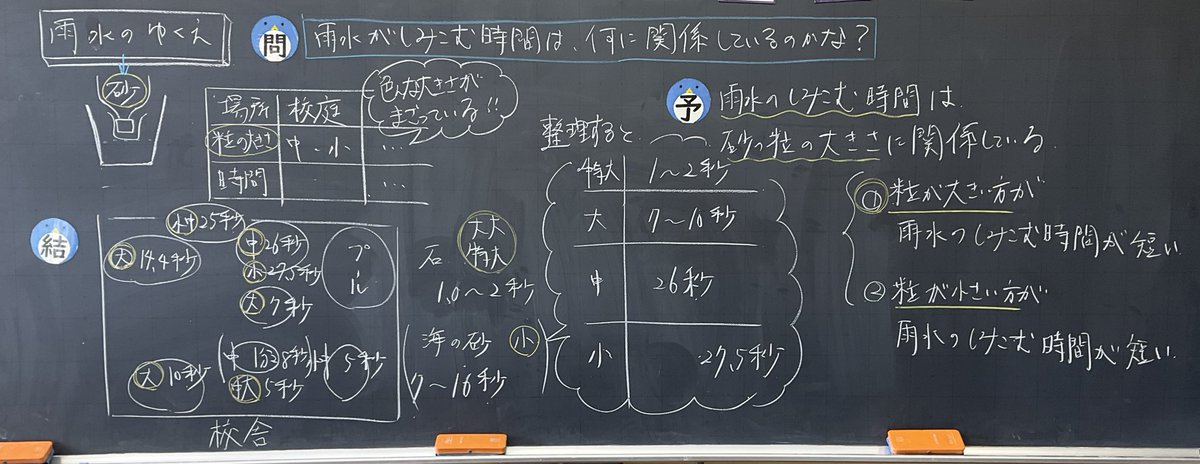 雨水のゆくえ
問 雨水がしみこむ時間は、何に関係しているのかな?
砂
場所 校庭
粒の大きさ 中・小 …
時間 …
色んな大きさが
まざっている!!
予 雨水のしみこむ時間は
砂の粒の大きさに関係している
① 粒が大きい方が
雨水のしみこむ時間が短い
② 粒が小さい方が
雨水のしみこむ時間が短い
結
小中25秒
大 14.4秒
中 26秒
小 27.5秒
大 7秒
プール
大 10秒
中 1分38秒
特大 5秒
小中 5秒
校舎
石
大大
特大
1.0~2秒
海の砂 小
7~16秒
整理すると
特大 1~2秒
大 7~10秒
中 26秒
小 27.5秒